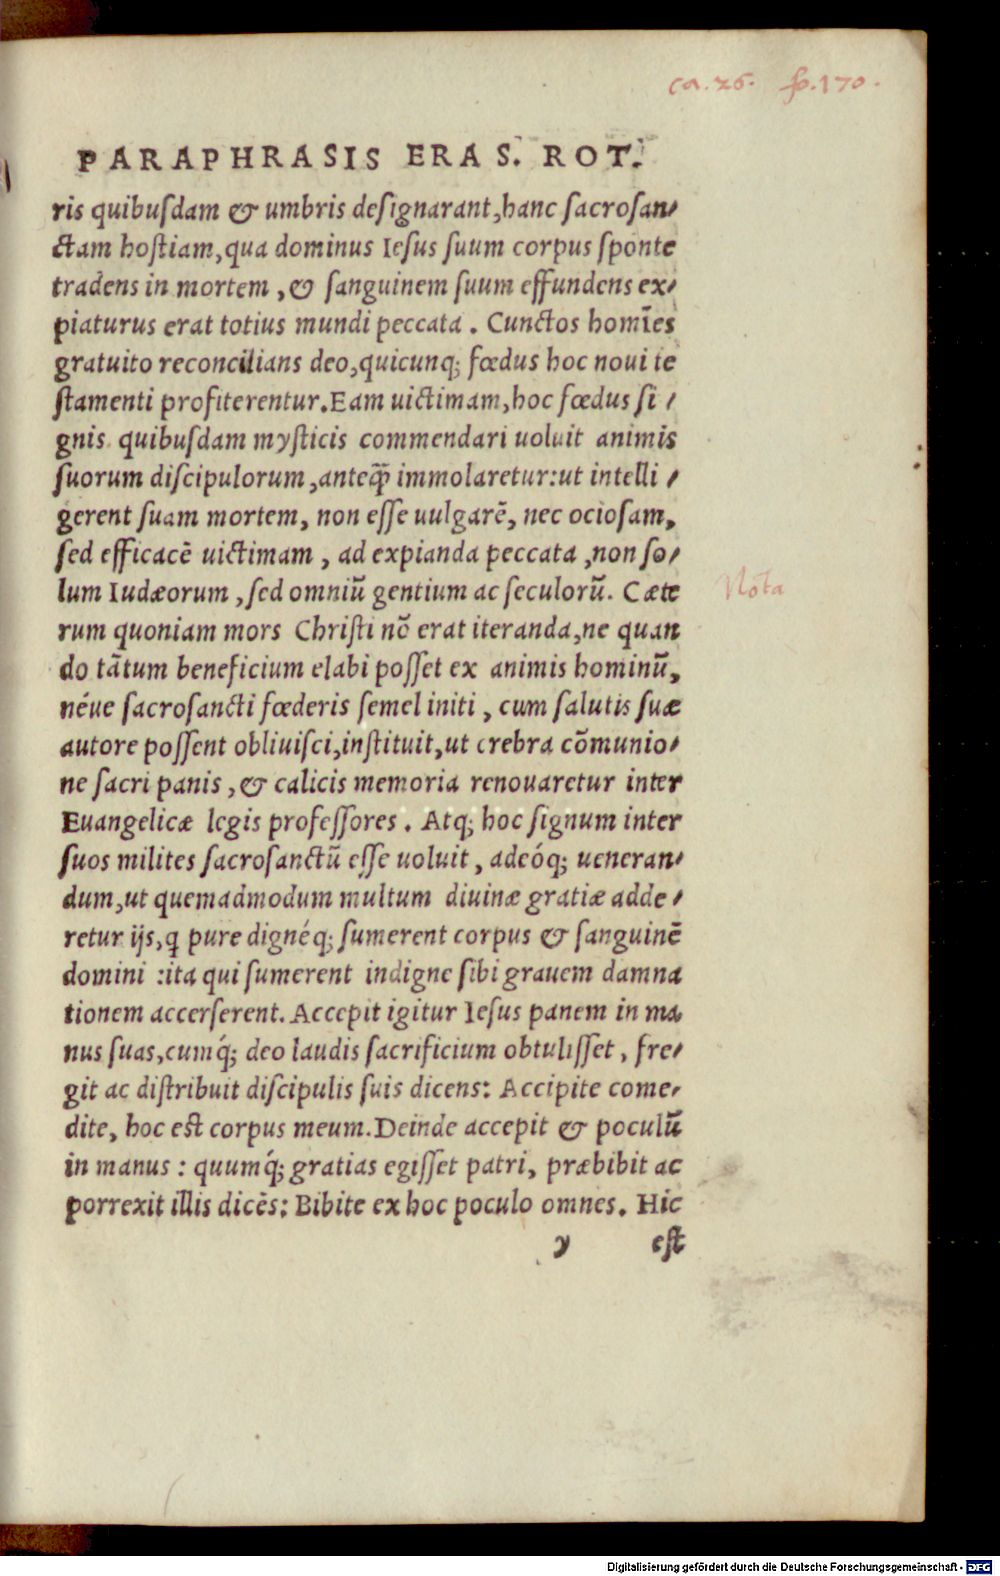 ca. 26. fo. 170.
PARAPHRASIS ERAS. ROT.
ris quibusdam & umbris designarant, hanc sacrosan-
ctam hostiam, qua dominus Iesus suum corpus sponte
tradens in mortem, & sanguinem suum effundens ex-
piaturus erat totius mundi peccata. Cunctos homīes
gratuito reconcilians deo, quicunq; fœdus hoc noui te
stamenti profiterentur. Eam uictimam, hoc fœdus si-
gnis quibusdam mysticis commendari uoluit animis
suorum discipulorum, anteq̃ immolaretur: ut intelli-
gerent suam mortem, non esse uulgarē, nec ociosam,
sed efficacē uictimam, ad expianda peccata, non so-
lum Iudæorum, sed omniū gentium ac seculorū. Cæte
Nota
rum quoniam mors Christi nō erat iteranda, ne quan
do tātum beneficium elabi posset ex animis hominū,
néue sacrosancti fœderis semel initi, cum salutis suæ
autore possent obliuisci, instituit, ut crebra cōmunio-
ne sacri panis, & calicis memoria renouaretur inter
Euangelicæ legis professores. Atq; hoc signum inter
suos milites sacrosanctū esse uoluit, adeóq; ueneran-
dum, ut quemadmodum multum diuinæ gratiæ adde-
retur ijs, ꝗ pure dignéq; sumerent corpus & sanguinē
domini: ita qui sumerent indigne sibi grauem damna
tionem accerserent. Accepit igitur Iesus panem in ma
nus suas, cumq́; deo laudis sacrificium obtulisset, fre-
git ac distribuit discipulis suis dicens: Accipite come-
dite, hoc est corpus meum. Deinde accepit & poculū
in manus: quumq́; gratias egisset patri, præbibit ac
porrexit illis dicēs: Bibite ex hoc poculo omnes. Hic
y est
Digitalisierung gefördert durch die Deutsche Forschungsgemeinschaft - DFG